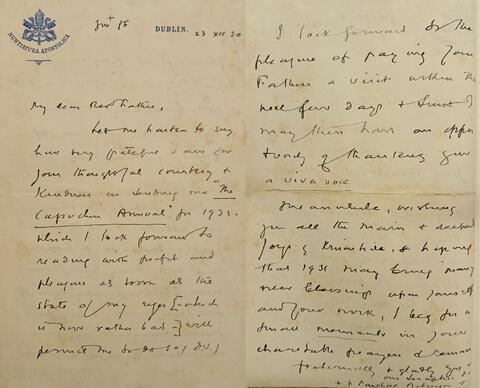 NUNTIATURA APOSTOLICA
DUBLIN. 23 XII 30
My dear Rev. Father,
Let me hasten to say
how very grateful I am for
your thoughtful courtesy &
kindness in sending me "The
Capuchin Annual" for 1931.
which I look forward to
reading with profit and
pleasure as soon as the
state of my eyes [which
is now rather bad] will
permit me to do so, (D.V.)
I look forward to the
pleasure of paying your
Fathers a visit within the
next few days & trust I
may then have an oppor
tunity of thanking you
a viva voce
Meanwhile, wishing
you all the
joys of Christmastide, & hoping
that 1931 may bring many
new blessings upon yourself
and your work, I beg for a
small memento in your
charitable prayers & remain
fraternally & gladly yrs
+ Paschal Robinson